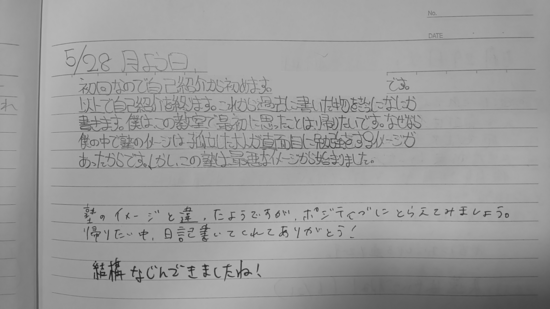 No.
DATE
5/28 月よう日
初回なので自己紹介から初めます。 です。
以上で自己紹介を終ります。これから
書きます。僕はこの教室で最初に思ったことは帰りたいです。なぜなら
僕の中で塾のイメージは孤立した人が真面目に勉強をするイメージが
あったからです。しかし、この塾は最悪なイメージから始まりました。
塾のイメージと違ったようですが、ポジティブにとらえてみましょう。
帰りたい中、日記書いてくれてありがとう!
結構なじんできましたね!